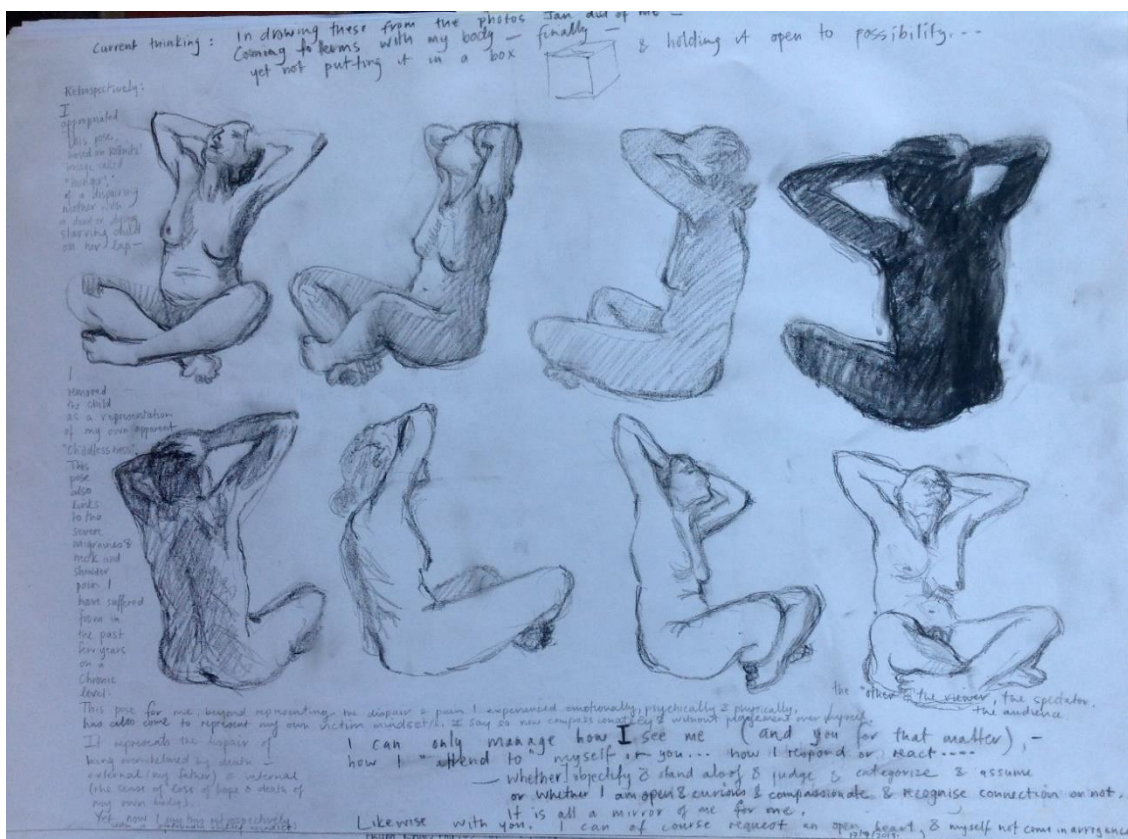 Current thinking : In drawing these from the photos Jan did of me –
Coming to terms with my body – finally – & holding it open to possibility...
yet not putting it in a box
Retrospectively:
I
appropriated
this pose,
based on
image called
"hunger",
of a dispairing
mother with
a dead or dying
starving child
on her lap –
I
removed
the child
as a representation
of my own apparent
"Childlessness".
This
pose
also
links
to the
severe
migraines &
neck and
shoulder
pain I
have suffered
from in
the past
few years
on a
Chronic
level.
the "other", the viewer, the spectator,
the audience
This pose for me, beyond representing the dispair & pain I experienced emotionally, psychically & physically,
has also come to represent my own victim mindset/s. I say so now compassionately & without judgement over myself.
It represents the despair of
being overwhelmed by death –
external (my father) & internal
(the sense of loss of hope & death of
my own body).
Yet now I see this retrospectively
I can only manage how I see me (and you for that matter), –
how I "attend to" myself or you... how I respond or react....
– whether I objectify & stand aloof & judge & categorize & assume
or whether I am open & curious & compassionate & recognise connection or not.
It is all a mirror of me for me.
Likewise with you. I can of course request an open heart, & myself not come in arrogance